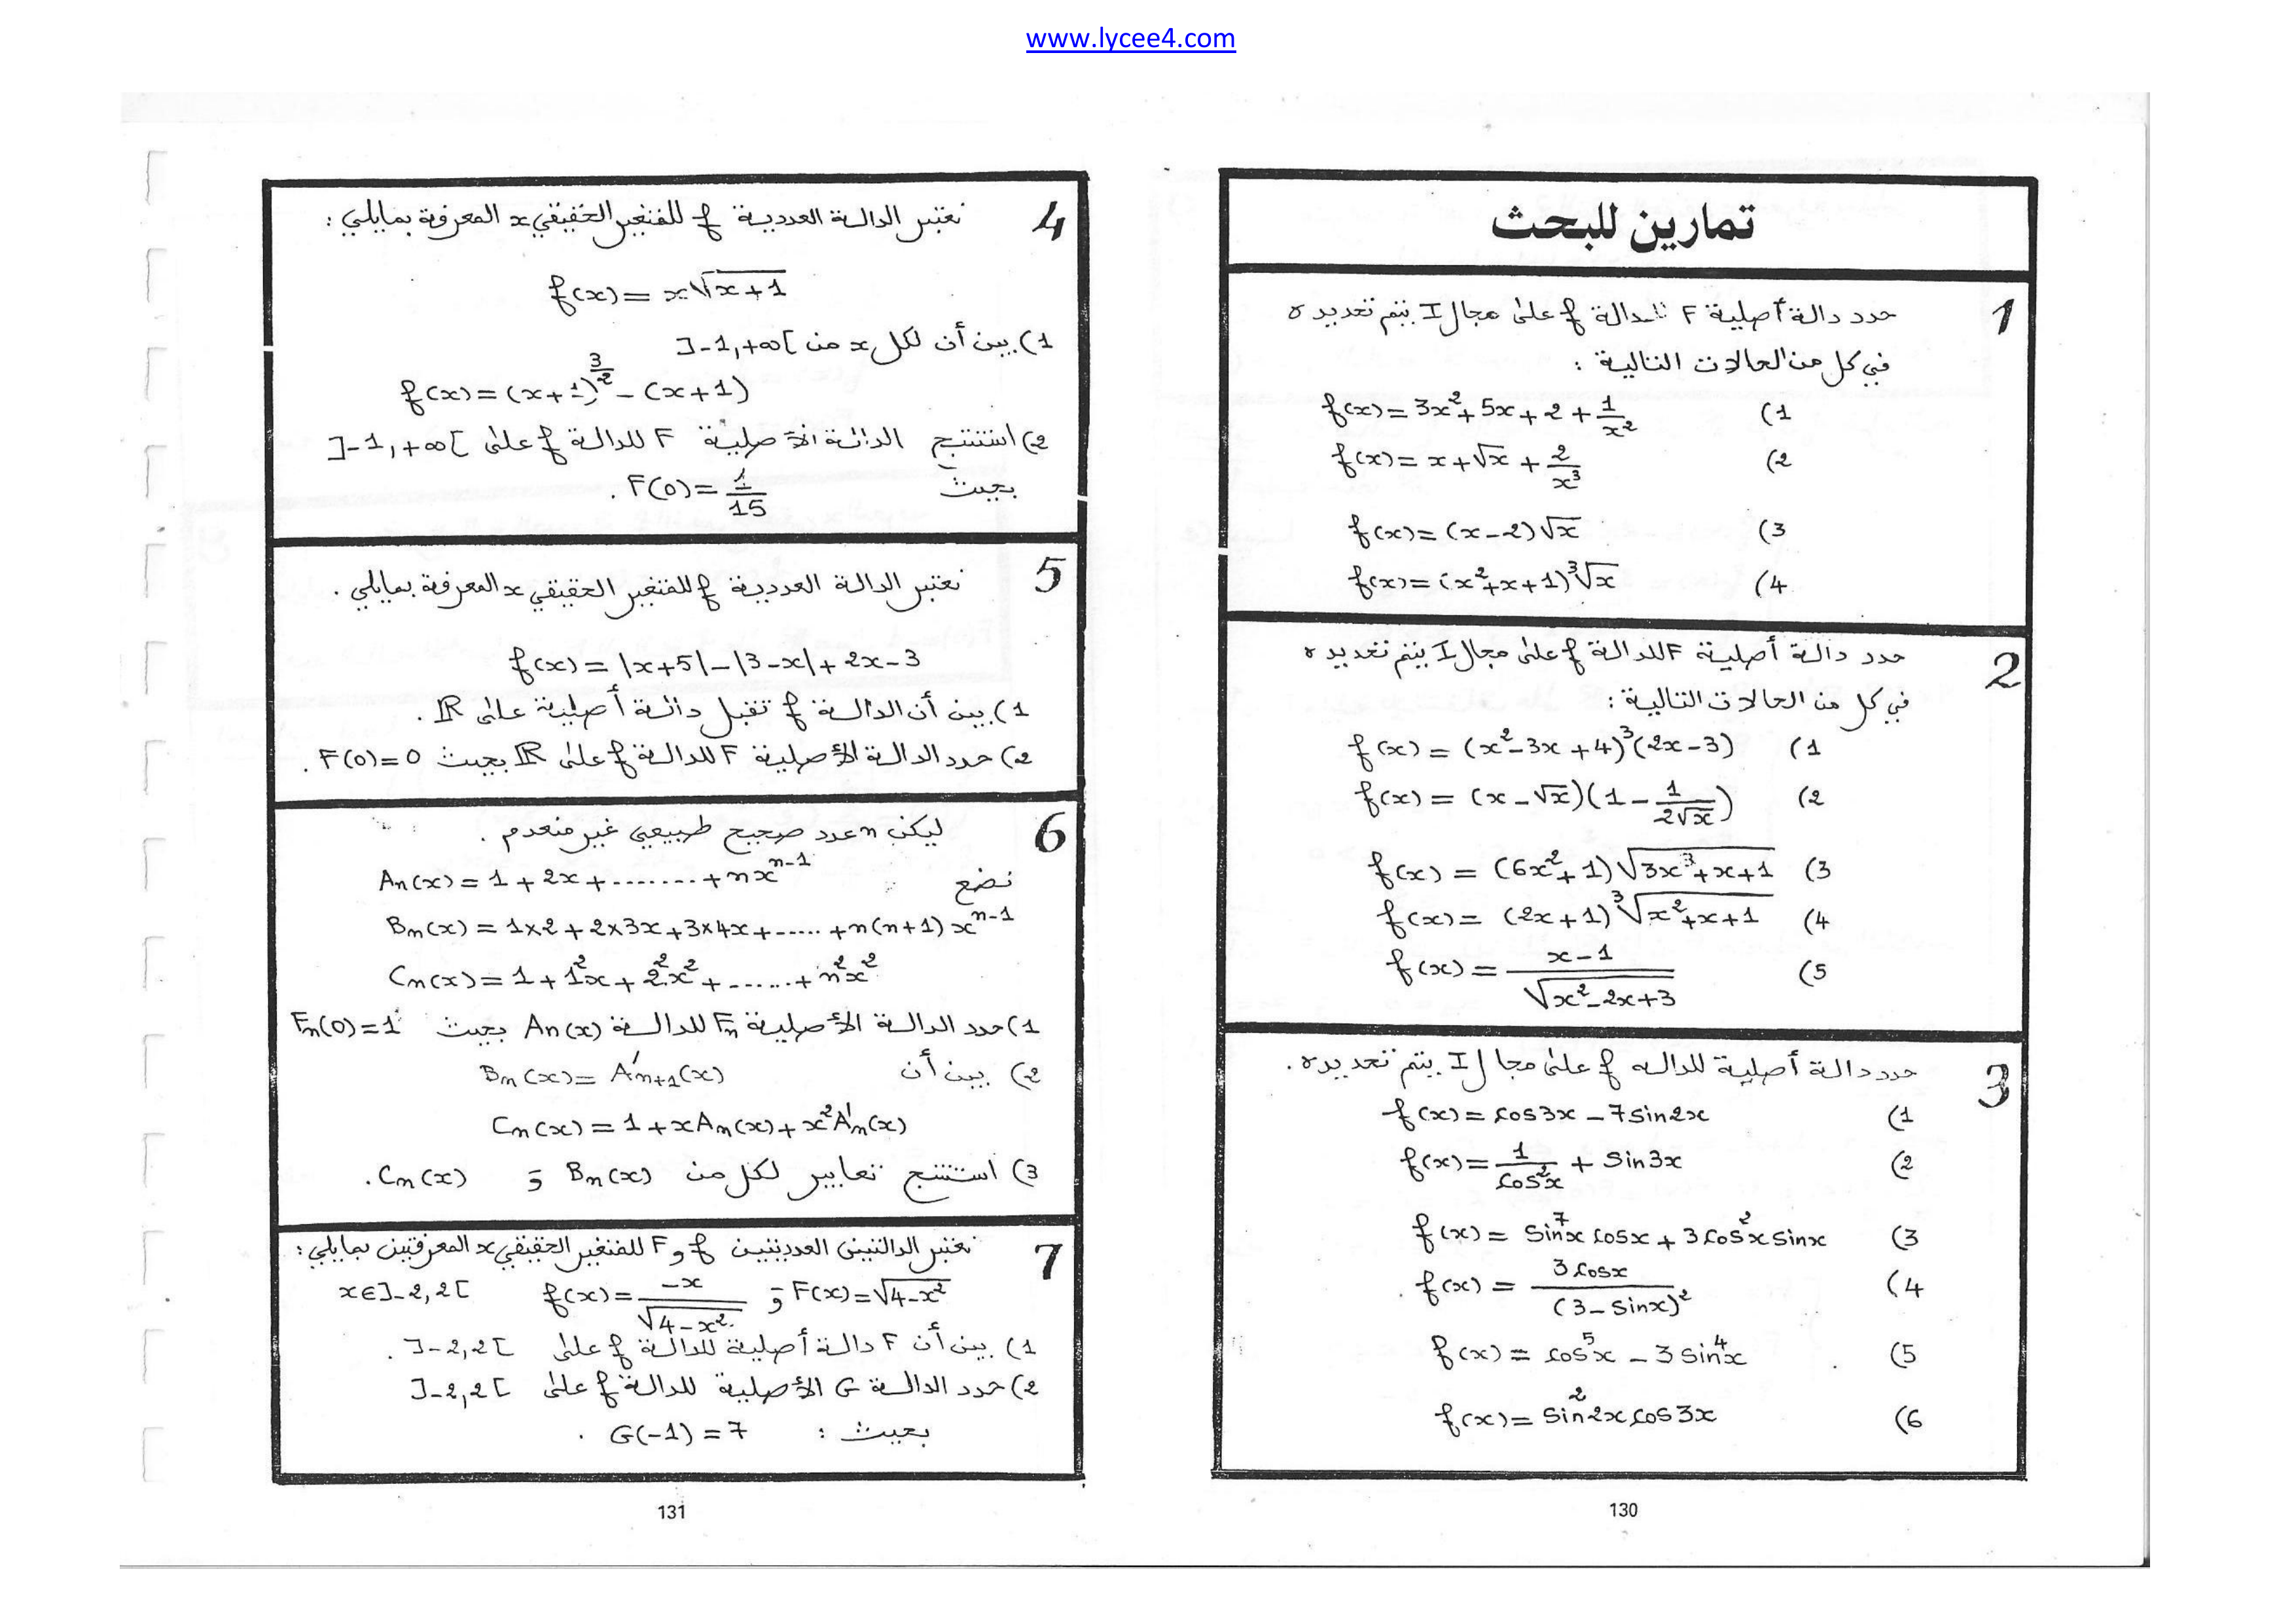 www.lycee4.com
تمارين للبحث
1 حدد دالة أصلية F للدالة f على مجال I يتم تحديده
في كل من الحالات التالية :
1) f(x) = 3x² + 5x + 2 + 1/x²
2) f(x) = x + √x + 2/x³
3) f(x) = (x-2)√x
4) f(x) = (x²+x+1)∛x
2 حدد دالة أصلية F للدالة f على مجال I يتم تحديده
في كل من الحالات التالية :
1) f(x) = (x²-3x+4)³(2x-3)
2) f(x) = (x-√x)(1 - 1/(2√x))
3) f(x) = (6x²+1)√(3x³+x+1)
4) f(x) = (2x+1)∛(x²+x+1)
5) f(x) = (x-1)/√(x²-2x+3)
3 حدد دالة أصلية للداله f على مجال I يتم تحديده .
1) f(x) = cos3x - 7sin2x
2) f(x) = 1/cos²x + sin3x
3) f(x) = sin⁷x cosx + 3cos²x sinx
4) f(x) = 3cosx/(3-sinx)²
5) f(x) = cos⁵x - 3sin⁴x
6) f(x) = sin²2x cos3x
130
4 نعتبر الدالة العددية f للمتغير الحقيقي x المعرفة بمايلي :
f(x) = x√(x+1)
1) بين أن لكل x من ]-1,+∞[
f(x) = (x+1)^(3/2) - (x+1)
2) استنتج الدالة الأصلية F للدالة f على ]-1,+∞[
بحيث F(0) = 1/15 .
5 نعتبر الدالة العددية f للمتغير الحقيقي x المعرفة بمايلي .
f(x) = |x+5| - |3-x| + 2x-3
1) بين أن الدالة f تقبل دالة أصلية على ℝ .
2) حدد الدالة الأصلية F للدالة f على ℝ بحيث F(0)=0 .
6 ليكن n عدد صحيح طبيعي غير منعدم .
نضع An(x) = 1 + 2x + ........ + nx^(n-1)
Bn(x) = 1×2 + 2×3x + 3×4x + ..... + n(n+1)x^(n-1)
Cn(x) = 1 + 1²x + 2²x² + ...... + n²x²
1) حدد الدالة الأصلية Fn للدالة An(x) بحيث Fn(0)=1
2) بين أن Bn(x) = A'n+1(x)
Cn(x) = 1 + xAn(x) + x²A'n(x)
3) استنتج تعابير لكل من Bn(x) و Cn(x) .
7 نعتبر الدالتين العدديتين f و F للمتغير الحقيقي x المعرفتين بمايلي :
F(x) = √(4-x²) و f(x) = -x/√(4-x²) x∈]-2,2[
1) بين أن F دالة أصلية للدالة f على ]-2,2[ .
2) حدد الدالة G الأصلية للدالة f على ]-2,2[
بحيث : G(-1) = 7 .
131